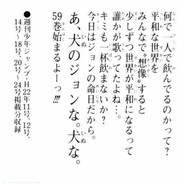 何を一人で飲んでるのかって?
平和な世界を
みんなで〝想像〟すると
少しずつ世界が平和になるって
誰かが歌ってたよね…。
キミも一杯飲まないか?
今日はジョンの命日だから。
あ、犬のジョンな。犬な。
59巻始まるよーっ!!!
●週刊少年ジャンプH22年11号、12号、
14号〜18号、20号〜24号掲載分収録